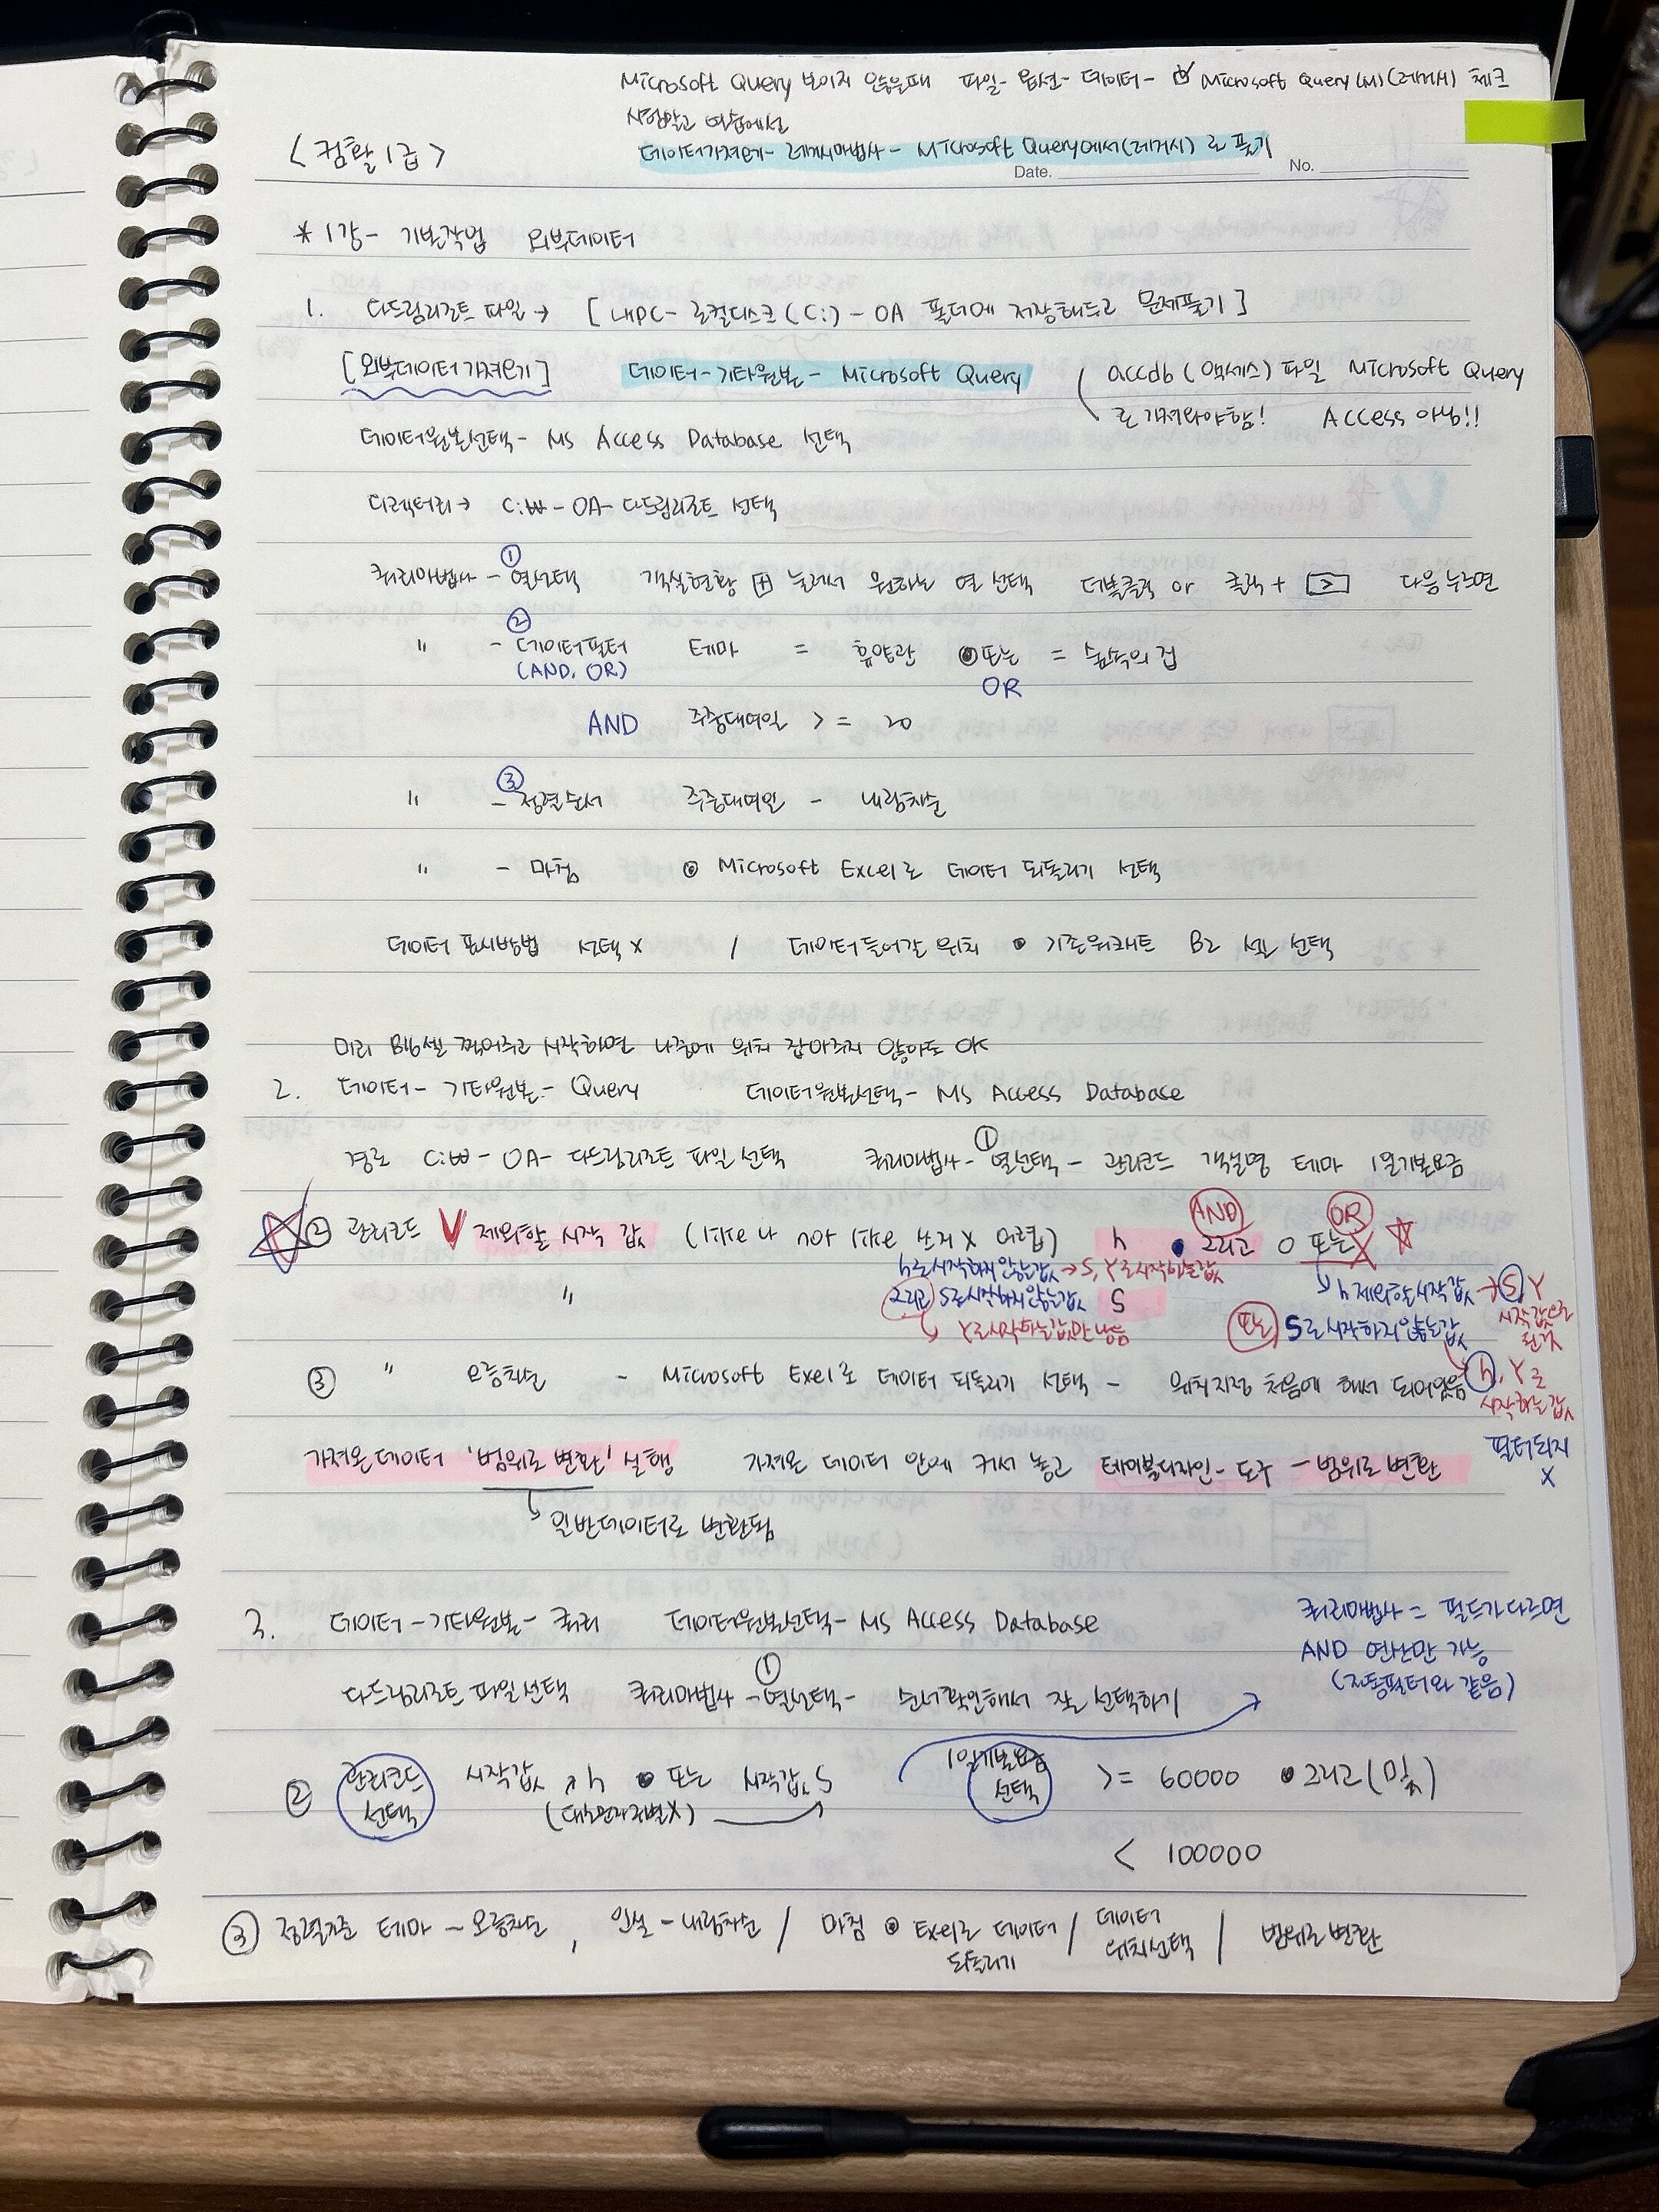 Microsoft Query 보이지 않을때 파일- 옵션- 데이터- ☑ Microsoft Query(M)(레거시) 체크
시험말고 연습에선
데이터가져오기- 레거시마법사- Microsoft Query에서(레거시)로 풀기
<컴활1급>
Date.
No.
* 1강- 기본작업 외부데이터
1. 다드림리조트 파일→ [내PC- 로컬디스크(C:)- OA 폴더에 저장해두고 문제풀기]
[외부데이터 가져오기] 데이터-기타원본- Microsoft Query
accdb(액세스)파일 Microsoft Query
로 가져와야함! Access 아님!!
데이터원본선택- Ms Access Database 선택
디렉터리→ C:₩-OA-다드림리조트 선택
쿼리마법사-①열선택 객실현황 ⊞ 눌러서 원하는 열 선택 더블클릭 or 클릭+ [>] 다음누르면
" -②데이터필터 테마 = 휴양관 ●또는 = 숲속의집
(AND, OR) OR
AND 주중대여일 >= 20
" -③정렬순서 주중대여일 - 내림차순
" - 마침 ◉ Microsoft Excel로 데이터 되돌리기 선택
데이터 표시방법 선택x / 데이터들어갈 위치 ● 기존워크시트 B2 셀 선택
미리 B16셀 찍어주고 시작하면 나중에 위치 잡아주지 않아도 OK
2. 데이터- 기타원본- Query 데이터원본선택- MS Access Database
경로 C:₩-OA-다드림리조트 파일 선택 쿼리마법사-①열선택- 관리코드 객실명 테마 1일기본요금
☆② 관리코드 V 제외할 시작 값 (like나 not like 쓰지X 어려움) h ● 그리고 AND ○ 또는X OR ☆
h로시작하지않는값→S, Y로시작하는값
" 그리고 S로시작하지않는값 S
↳ Y로시작하는값만 나옴
↳ h 제외한시작값→S,Y
시작값으로
된것
또는 S로시작하지않는값
↳ h, Y로
시작하는값
필터되지
X
③ " 오름차순 - Microsoft Exel로 데이터 되돌리기 선택- 위치지정 처음에 해서 되어있음
가져온데이터 '범위로 변환' 실행 가져온 데이터 안에 커서 놓고 테이블디자인- 도구 -범위로 변환
↳ 일반데이터로 변환됨
3. 데이터-기타원본-쿼리 데이터원본선택- MS Access Database
쿼리마법사 = 필드가다르면
AND 연산만 가능
(자동필터와 같음)
다드림리조트 파일선택 쿼리마법사-①열선택- 순서확인해서 잘 선택하기
② 관리코드 선택 시작값, h ● 또는 시작값, S 1일기본요금 선택 >= 60000 ●그리고(및)
(대소문자구별X)
< 100000
③ 정렬기준 테마-오름차순, 인실-내림차순 / 마침 ◉ Exel로 데이터 되돌리기 / 데이터 위치선택 / 범위로변환